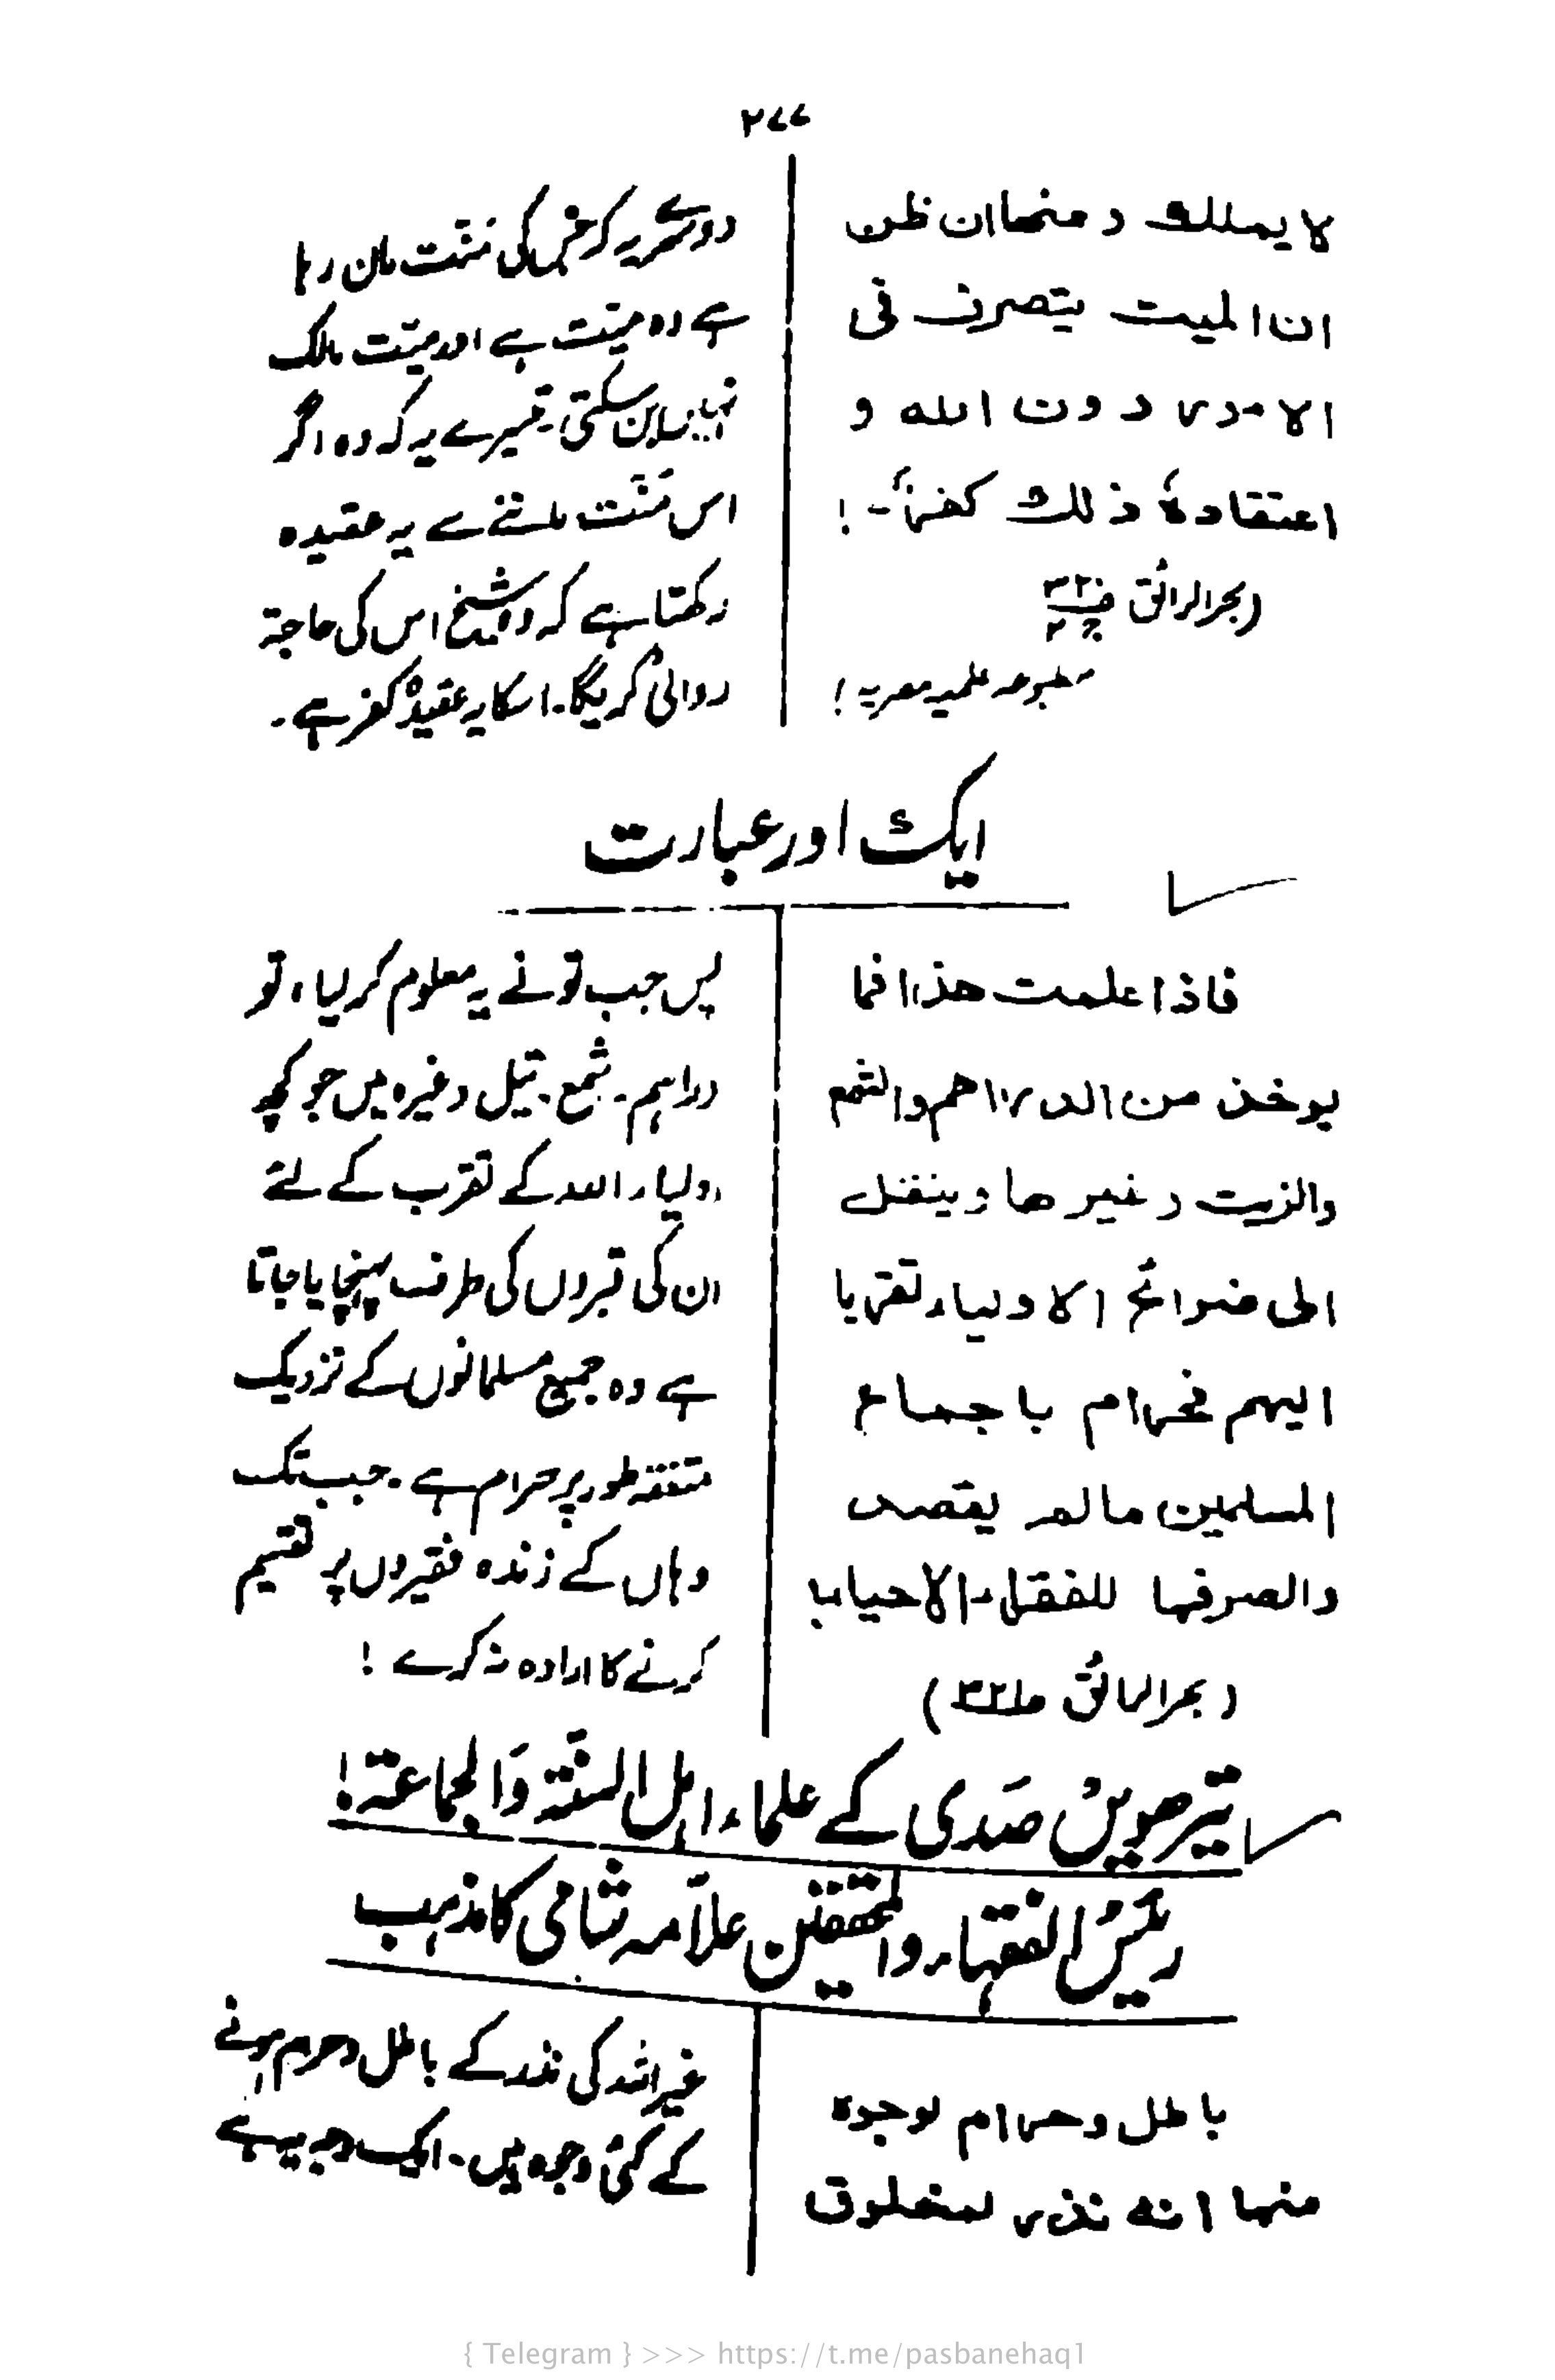 ۲۷۷
لا یملک و منھا ان ظن
ان المیت یتصرف فی
الامور دون اللہ و
اعتقادہٗ ذلک کفرٌ۔!
(بحر الرائق
مطبوعہ علمیہ مصریہ!
دوسرے یہ کہ جس کی منّت مان رہا
ہے وہ میّت ہے اور میّت مالک
نہیں بن سکتی۔ تیسرے یہ کہ وہ اگر
اس مَنّت ماننے سے یہ عقیدہ
رکھتا ہے کہ وہ شیخ اس کی حاجۃ
روائی کریگا۔ اسکا یہ عقیدہ کفر ہے۔
ایک اور عبارت
فاذا علمت ھذا فما
یوخذ من الدراھم والشمع
والزیت و غیرھا و ینقل
الی ضرائح الاولیاء تقربا
الیھم فحرام باجماع
المسلمین مالم یقصد
والصرفھا للفقراء الاحیاء
(بحر الرائق
پس جب تو نے یہ معلوم کر لیا، تو
دراہم۔ شمع۔ تیل وغیرہ میں جو کچھ
اولیاء اللہ کے تقرب کے لئے
ان کی قبروں کی طرف پہنچایا جاتا
ہے وہ جمیع مسلمانوں کے نزدیک
متفقہ طور پر حرام ہے۔ جب تک
وہاں کے زندہ فقیروں پر تقسیم
کرنے کا ارادہ نہ کرے!
تیرھویں صَدی کے علماء اہل السنّۃ وَالجماعۃ!
رئیسُ الفقہاء والمحققین علاّمہ شامی کا مذہب
باطل وحرام لوجوہ
منھا انہ نذر لمخلوق
غیر اللہ کی نذر کے باطل وحرام ہونے
کے کئی وجوہ ہیں۔ ایک وجہ یہ ہے
{ Telegram } >>> https://t.me/pasbanehaq1